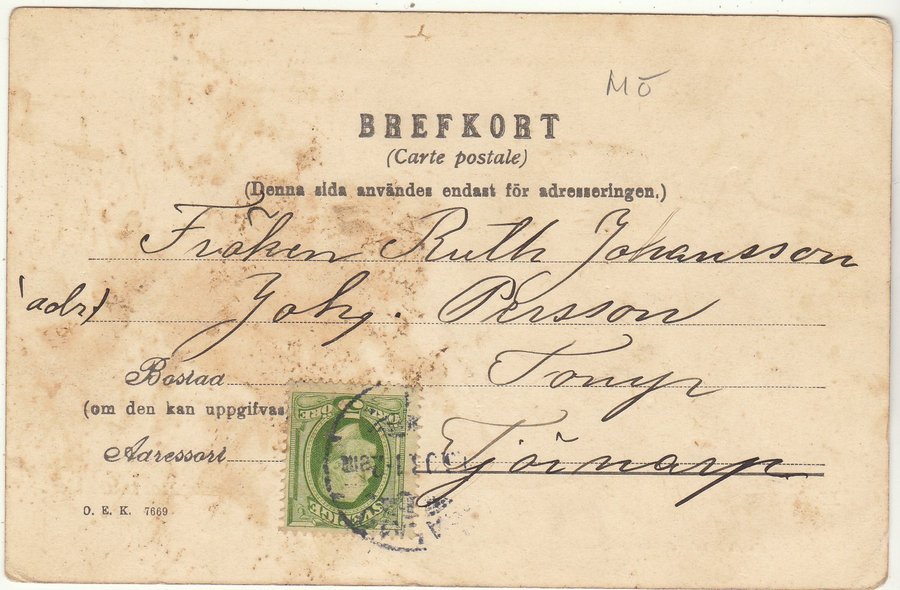 MÖ
BREFKORT
(Carte postale)
(Denna sida användes endast för adresseringen.)
Fröken Ruth Johansson
adr Joh. Persson
Bostad Tonyr
(om den kan uppgifvas
Adressort Tjörnarp
O. E. K. 7669
SVERIGE